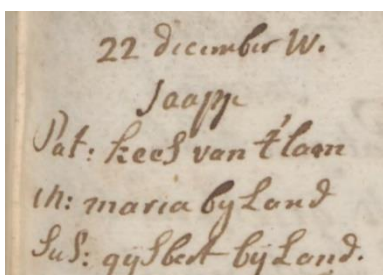 22 december W.
Jaapje
Pat: kees van t'lam
M: maria byland
Sus: gijsbert bijland.